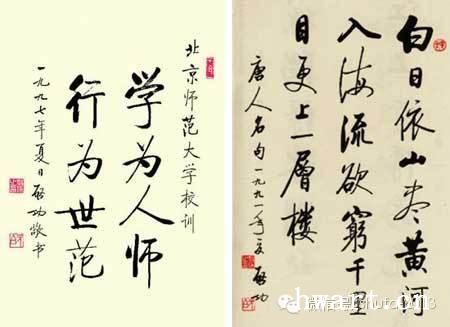 北京师范大学校训
学为人师
行为世范
一九九七年夏日啓功敬书
白日依山尽黄河
入海流欲窮千里
目更上一層樓
唐人名句一九九一年夏 啓功